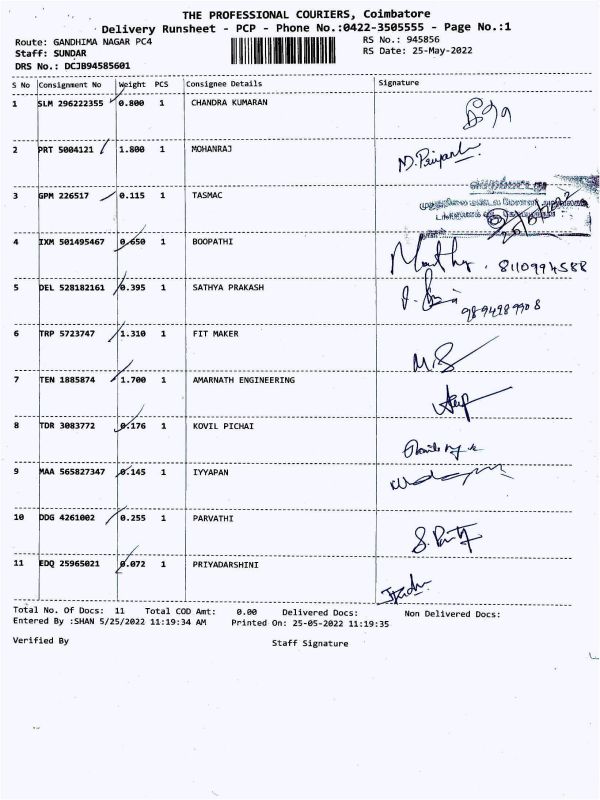 THE PROFESSIONAL COURIERS, Coimbatore
Delivery Runsheet - PCP - Phone No.:0422-3505555 - Page No.:1
Route: GANDHIMA NAGAR PC4 RS No.: 945856
Staff: SUNDAR RS Date: 25-May-2022
DRS No.: DCJB94585601
S No Consignment No Weight PCS Consignee Details Signature
1 SLM 296222355 0.800 1 CHANDRA KUMARAN
2 PRT 5004121 1.800 1 MOHANRAJ
3 GPM 226517 0.115 1 TASMAC
4 IXM 501495467 0.650 1 BOOPATHI 8110994588
5 DEL 528182161 0.395 1 SATHYA PRAKASH 9894989908
6 TRP 5723747 1.310 1 FIT MAKER
7 TEN 1885874 1.700 1 AMARNATH ENGINEERING
8 TDR 3083772 0.176 1 KOVIL PICHAI
9 MAA 565827347 0.145 1 IYYAPAN
10 DDG 4261002 0.255 1 PARVATHI
11 EDQ 25965021 0.072 1 PRIYADARSHINI
Total No. Of Docs: 11 Total COD Amt: 0.00 Delivered Docs: Non Delivered Docs:
Entered By :SHAN 5/25/2022 11:19:34 AM Printed On: 25-05-2022 11:19:35
Verified By Staff Signature